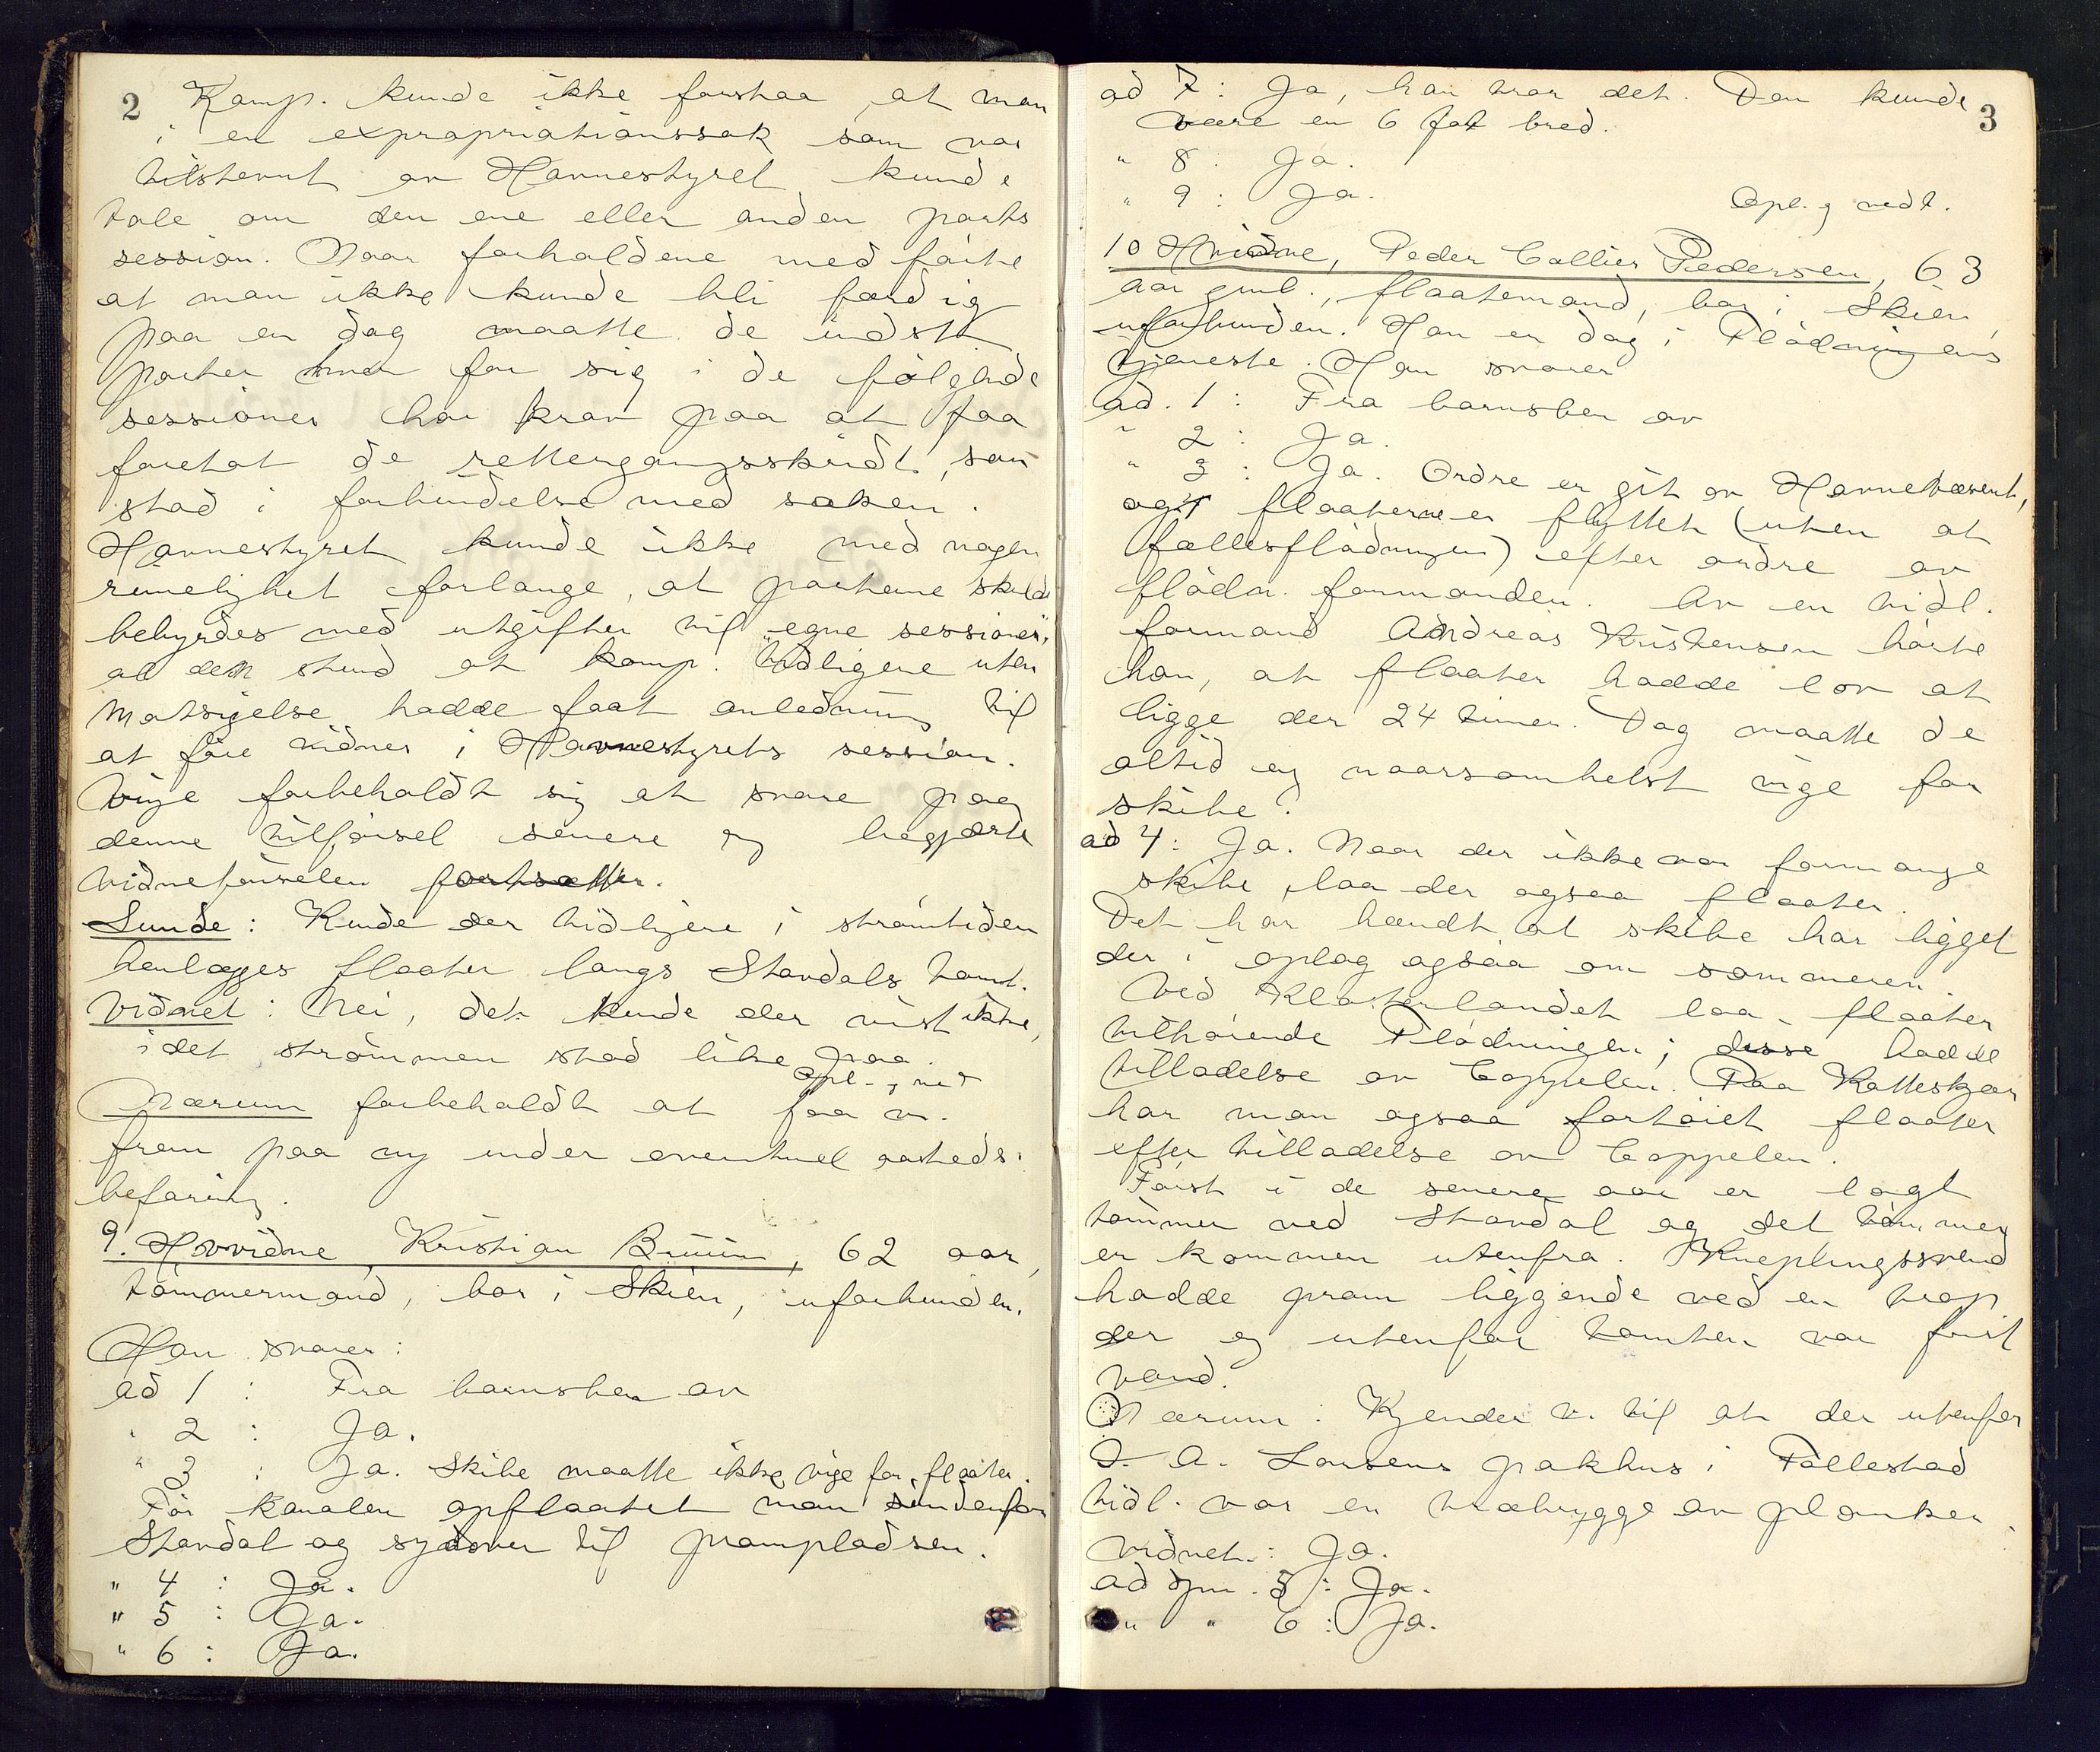 2
Komp. kunde ikke forstaa, at man
i en expropriationssak som var
tilstevnt av Havnestyret kunde
tale om den ene eller anden parts
session. Naar forholdene medførte
at man ikke kunde bli færdig
paa en dag maatte de indst.
parter hver for sig i de følgende
sessioner ha krav paa at faa
foretat de rettergangsskridt, som
stod i forbindelse med saken.
Havnestyret kunde ikke med nogen
rimelighet forlange, at parterne skulde
bebyrdes med utgifter til "egne sessioner",
al den stund at komp. tidligere uten
motsigelse hadde faat anledning til
at føre vidner i Havnestyrets session.
Vige forbeholdt sig at svare paa
denne tilførsel senere og begjærte
vidneførselen fortsatt.
Lunde: Kunde der tidligere i strømtiden
henlægges flaater langs Stavdals tomt.
Vidnet: Nei, det kunde der vist ikke,
idet strømmen stod like paa.
Opl. , ved
Nærum forbeholdt at faa v.
frem paa ny under eventuel aasteds-
befaring.
9. Hvvidne, Kristian Bruun, 62 aar,
tømmermand, bor i Skien, uforbunden.
Han svarer:
ad 1 : Fra barnsben av
" 2 : Ja.
" 3 : Ja. Skibe maatte ikke vige for flaater.
Før kanalen opflaatet man indenfor
Stavdal og sydover til prampladsen.
" 4 : Ja.
" 5 : Ja.
" 6 : Ja.
3
ad 7: Ja, han var det. Den kunde
være en 6 fot bred.
" 8 : Ja.
" 9 : Ja.
Opl. g vedt.
10 Hvidne, Peder Collier Pedersen, 63
aar gml., flaatemand, bor i Skien,
uforbunden. Han er dog i Flødningens
tjeneste. Han svarer
ad. 1 : Fra barnsben av
" 2 : Ja.
" 3 : Ja. Ordre er git av Havnevæsenet,
og flaaterne er flyttet (uten at
fællesflødningen) efter ordre av
flødn. formanden. Av en tidl.
formand Andreas Kristensen hørte
han, at flaater hadde lov at
ligge der 24 timer. Dog maatte de
altid og naarsomhelst vige for
skibe.
ad 4: Ja. Naar der ikke var for mange
skibe, laa der ogsaa flaater.
Det har hændt at skibe har ligget
der i oplag ogsaa om sommeren.
Ved Klosterlandet laa flaater
tilhørende Flødningen; disse hadde
tilladelse av Coppelen. Paa Katteskjær
har man ogsaa fortøiet flaater
efter tilladelse av Coppelen.
Først i de senere aar er lagt
tømmer ved Stavdal og det tømmer
er kommen utenfra. Kneplingssvend
hadde pram liggende ved en trap
der og utenfor tomten var frit
vand.
Nærum: Kjender v. til at der utenfor
I. A. Larsens pakhus i Follestad
tidl. var en træbrygge av planker.
Vidnet.: Ja.
ad spm. 5 : Ja.
" " 6 : Ja.